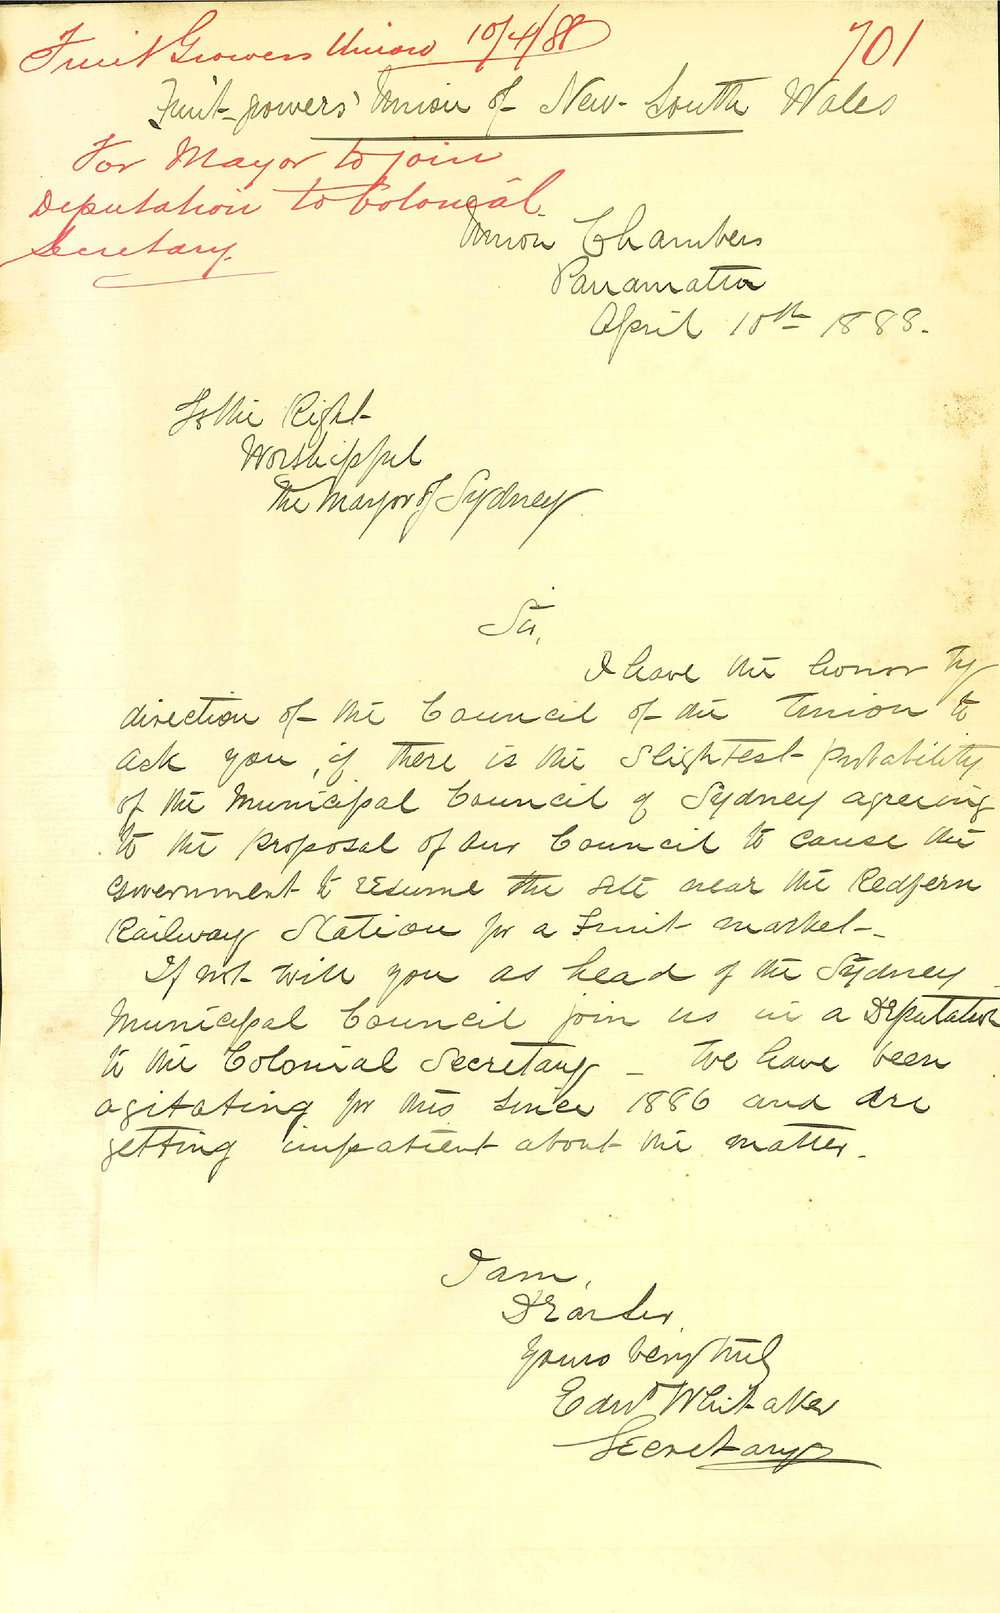 Fruit Growers Union 10/4/88
701
Fruit-growers' Union of New South Wales
For Mayor to join
Deputation to Colonial
Secretary.
Union Chambers
Parramatta
April 10th 1888.
To the Right
Worshipful
The Mayor of Sydney
Sir,
I have the honor by
direction of the Council of the Union to
ask you, if there is the slightest probability
of the Municipal Council of Sydney agreeing
to the proposal of our Council to cause the
Government to resume the site near the Redfern
Railway Station for a Fruit market -
If not will you as head of the Sydney
Municipal Council join us in a Deputation
to the Colonial Secretary - We have been
agitating for this since 1886 and are
getting impatient about the matter.
I am,
Dear Sir,
Yours very truly
Edwd Whitaker
Secretary